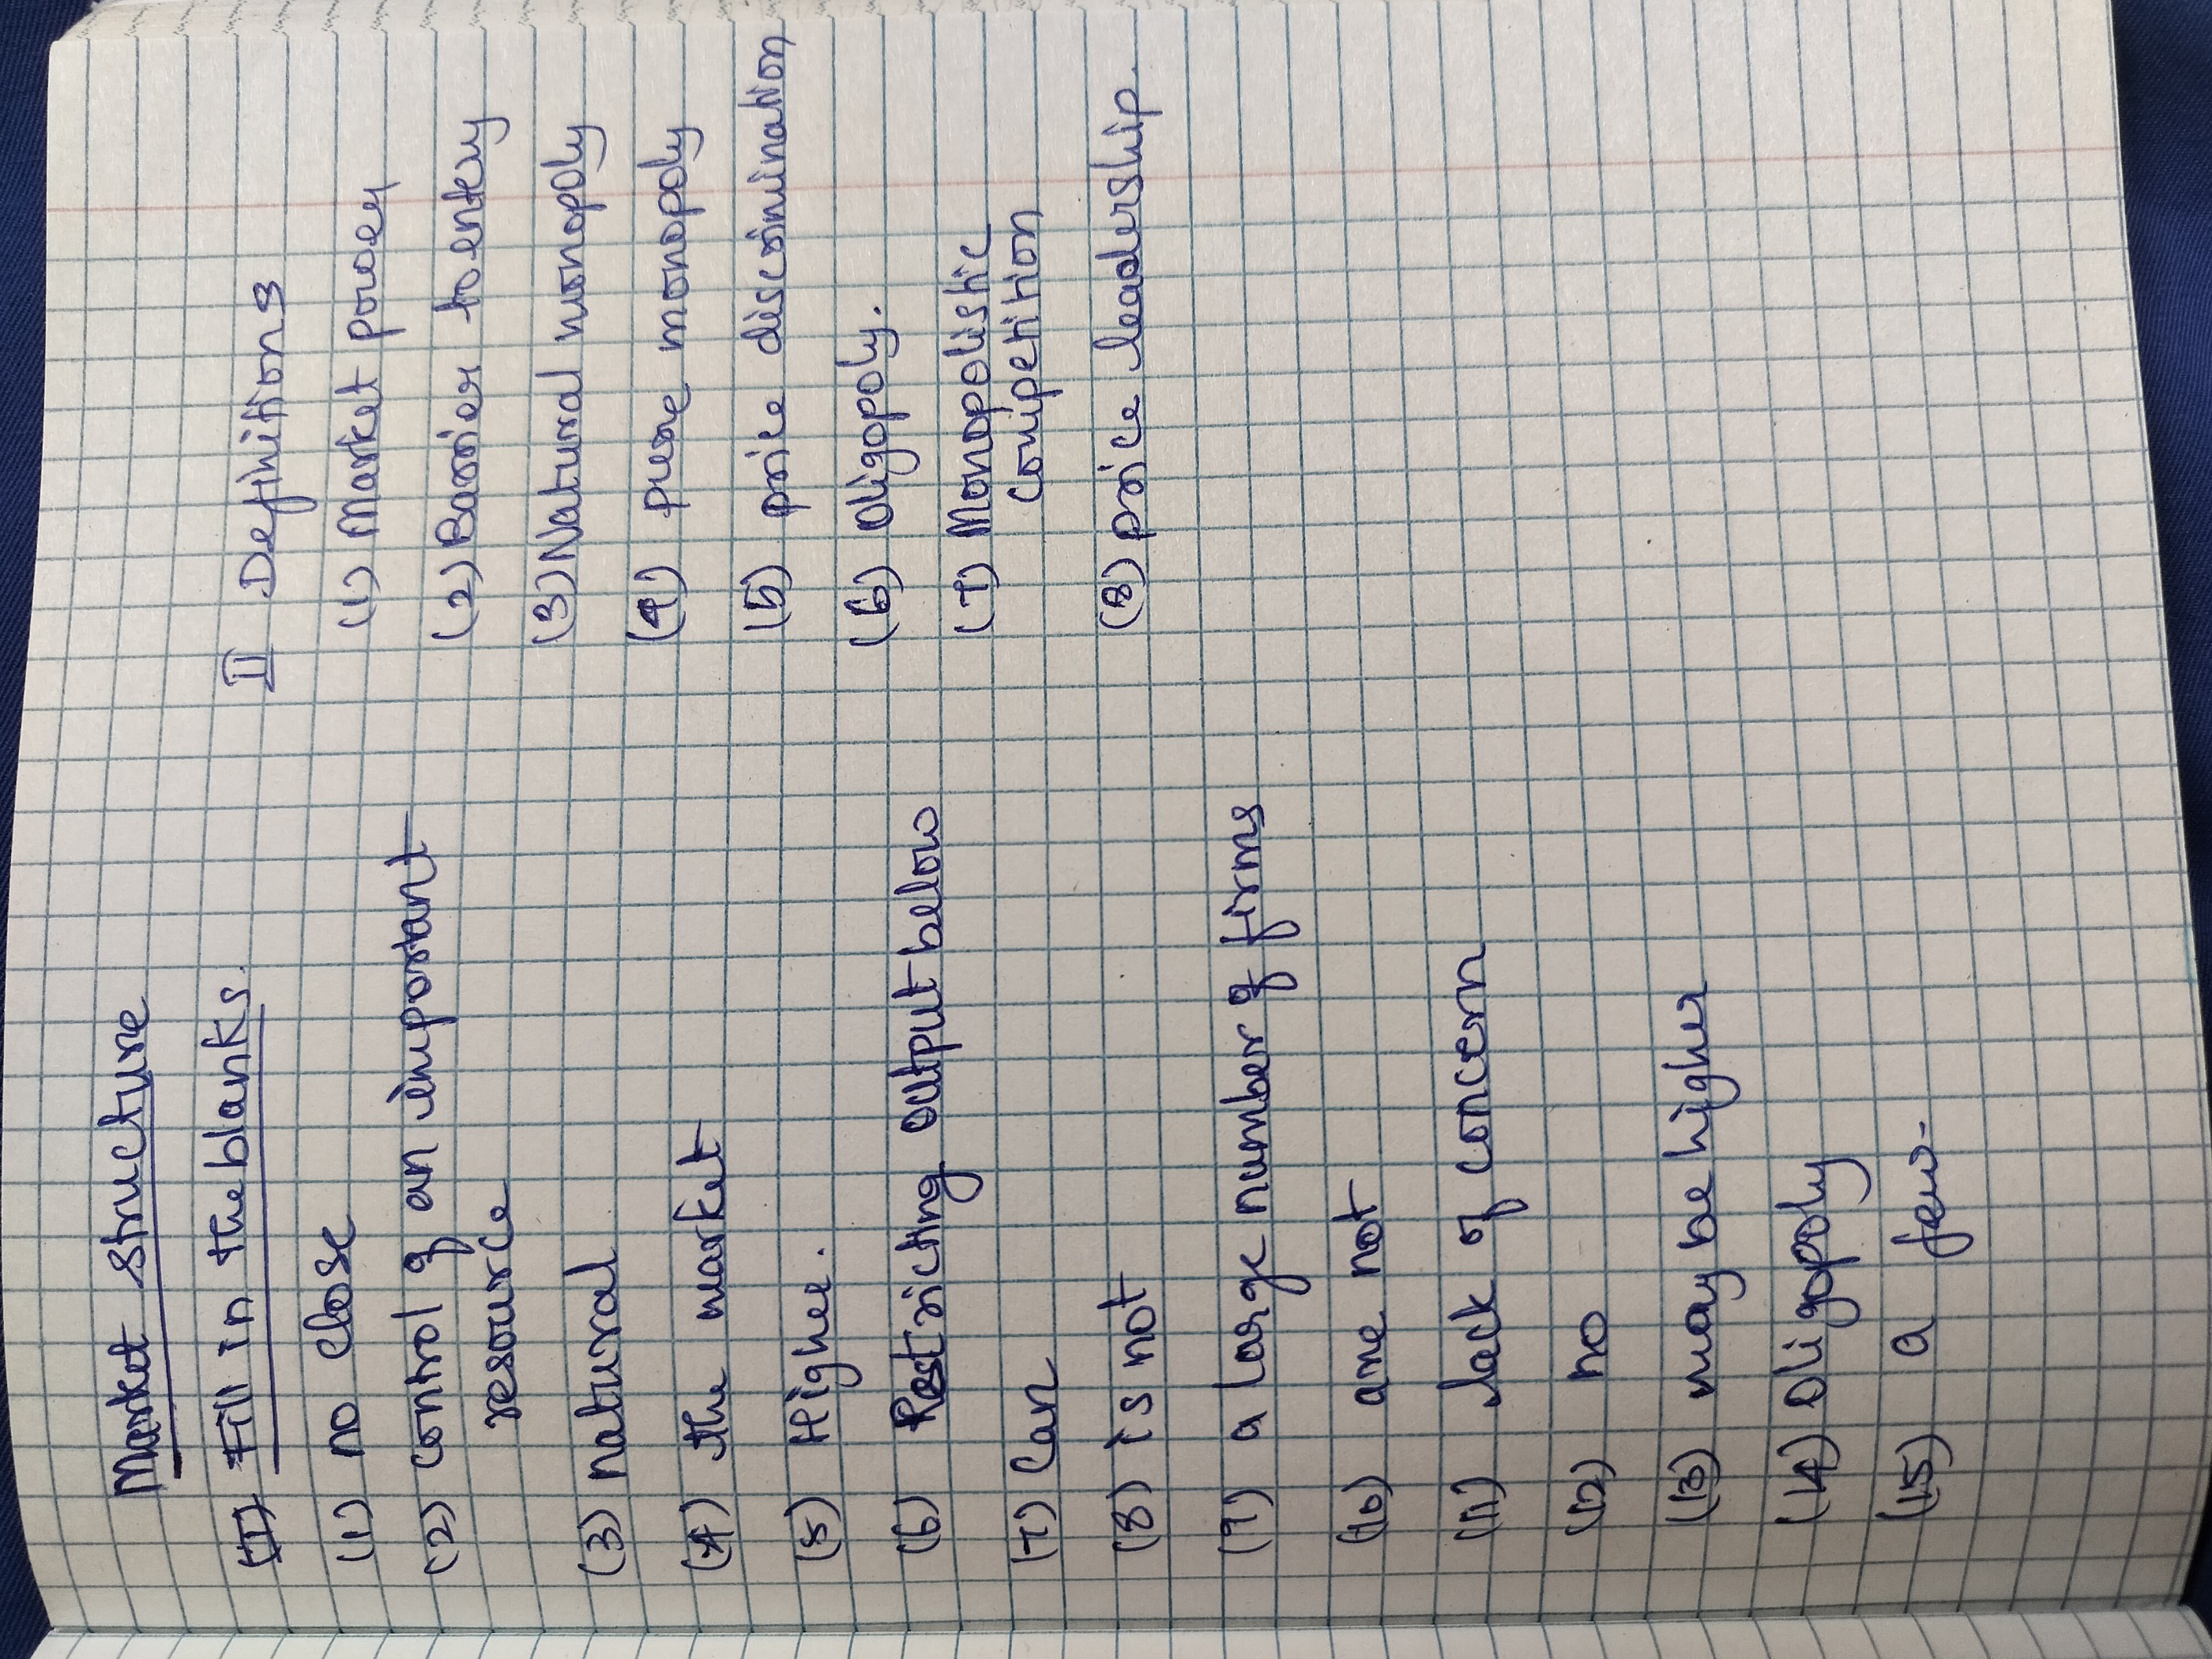 Market structure
(I) Fill in the blanks.
(1) no close
(2) control of an important
resource
(3) natural
(4) the market
(5) Higher.
(6) Restricting output below
(7) Can
(8) is not
(9) a large number of firms
(10) are not
(11) lack of concern
(12) no
(13) may be higher
(14) Oligopoly
(15) a few.
II Definitions
(1) Market power
(2) Barrier to entry
(3) Natural monopoly
(4) pure monopoly
(5) price discrimination
(6) Oligopoly.
(7) Monopolistic
competition
(8) price leadership.